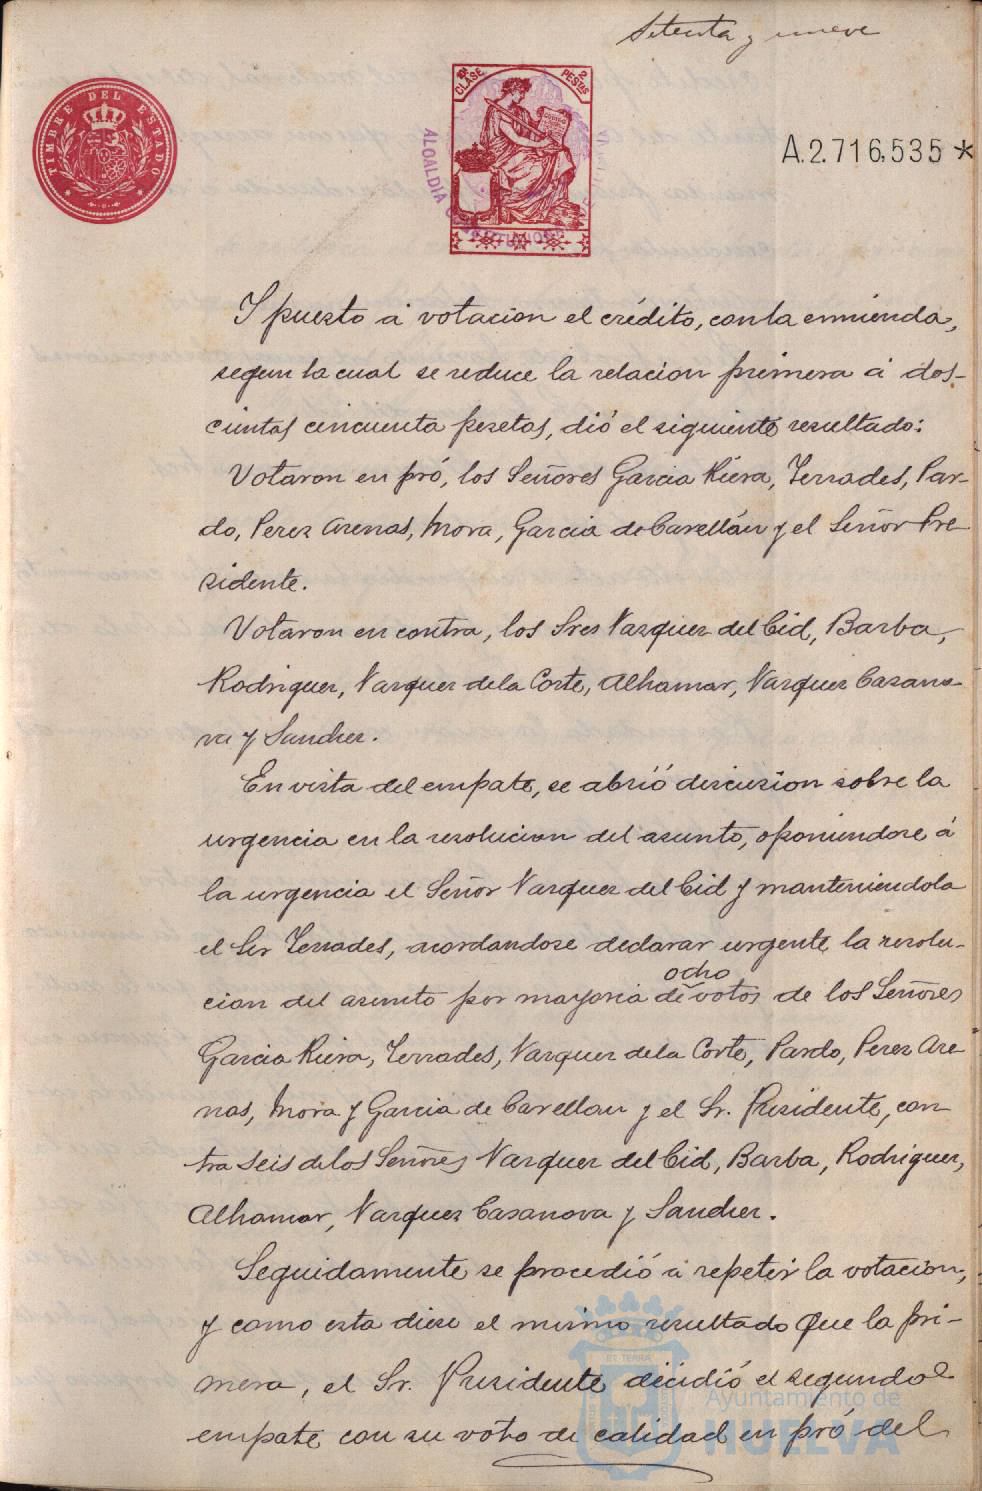 Setenta y nueve
TIMBRE DEL ESTADO
10ª CLASE 2 PESTAS
ALCALDIA CONSTITUCIONAL
A.2.716,535 *
Y puesto á votacion el crédito, con la enmienda,
segun la cual se reduce la relacion primera á dos-
cientas cincuenta pesetas, dió el siguiente resultado:
Votaron en pró, los Señores Garcia Riera, Terrades, Par-
do, Perez Arenas, Mora, Garcia de Cavellán y el Señor Pre
sidente.
Votaron en contra, los Sres Vazquez del Cid, Barba,
Rodriguez, Vazquez de la Corte, Alhamar, Vazquez Casano-
va y Sanchez.
En vista del empate, se abrió discusion sobre la
urgencia en la resolucion del asunto, oponiendose á
la urgencia el Señor Vazquez del Cid y manteniendola
el Sr Terrades, acordandose declarar urgente la resolu-
cion del asunto por mayoria de ocho votos de los Señores
Garcia Riera, Terrades, Vazquez de la Corte, Pardo, Perez Are
nas, Mora y Garcia de Cavellan y el Sr. Presidente, con
tra seis de los Señores Vazquez del Cid, Barba, Rodriguez,
Alhamar, Vazquez Casanova y Sanchez.
Seguidamente se procedió á repetir la votacion,
y como esta diese el mismo resultado que la pri-
mera, el Sr. Presidente decidió el segundo
empate con su voto de calidad en pró del
Ayuntamiento de
HUELVA